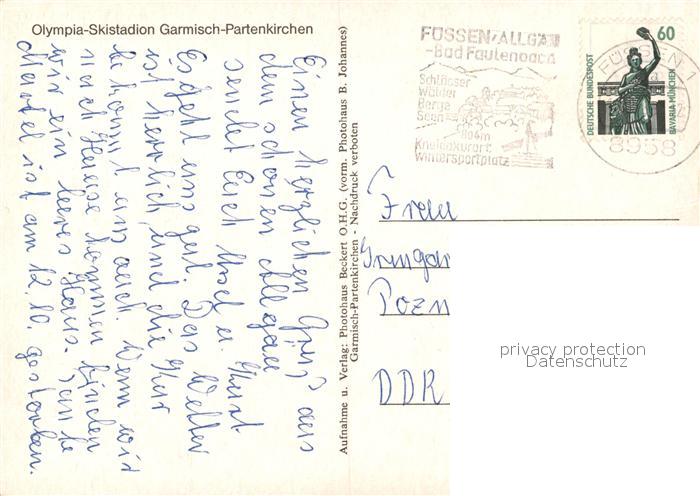 Olympia-Skistadion Garmisch-Partenkirchen
Einen herzlichen Gruß aus
dem schönen Allgäu
sendet Euch
Es geht uns gut. Das Wetter
ist herrlich, und die Kur
bekommt uns auch. Wenn wir
nach Hause kommen finden
wir ein leeres Haus. Tante
ist am 12.10. gestorben.
Aufnahme u. Verlag: Photohaus Beckert O.H.G. (vorm. Photohaus B. Johannes)
Garmisch-Partenkirchen - Nachdruck verboten
FÜSSEN/ALLGÄU
-Bad Faulenbach
Schlösser
Wälder
Berge
Seen
804m
Kneippkurort
Wintersportplatz
60
DEUTSCHE BUNDESPOST
BAVARIA MÜNCHEN
FÜSSEN
8958
Frau
Irmgar
Pozn
DDR
privacy protection
Datenschutz